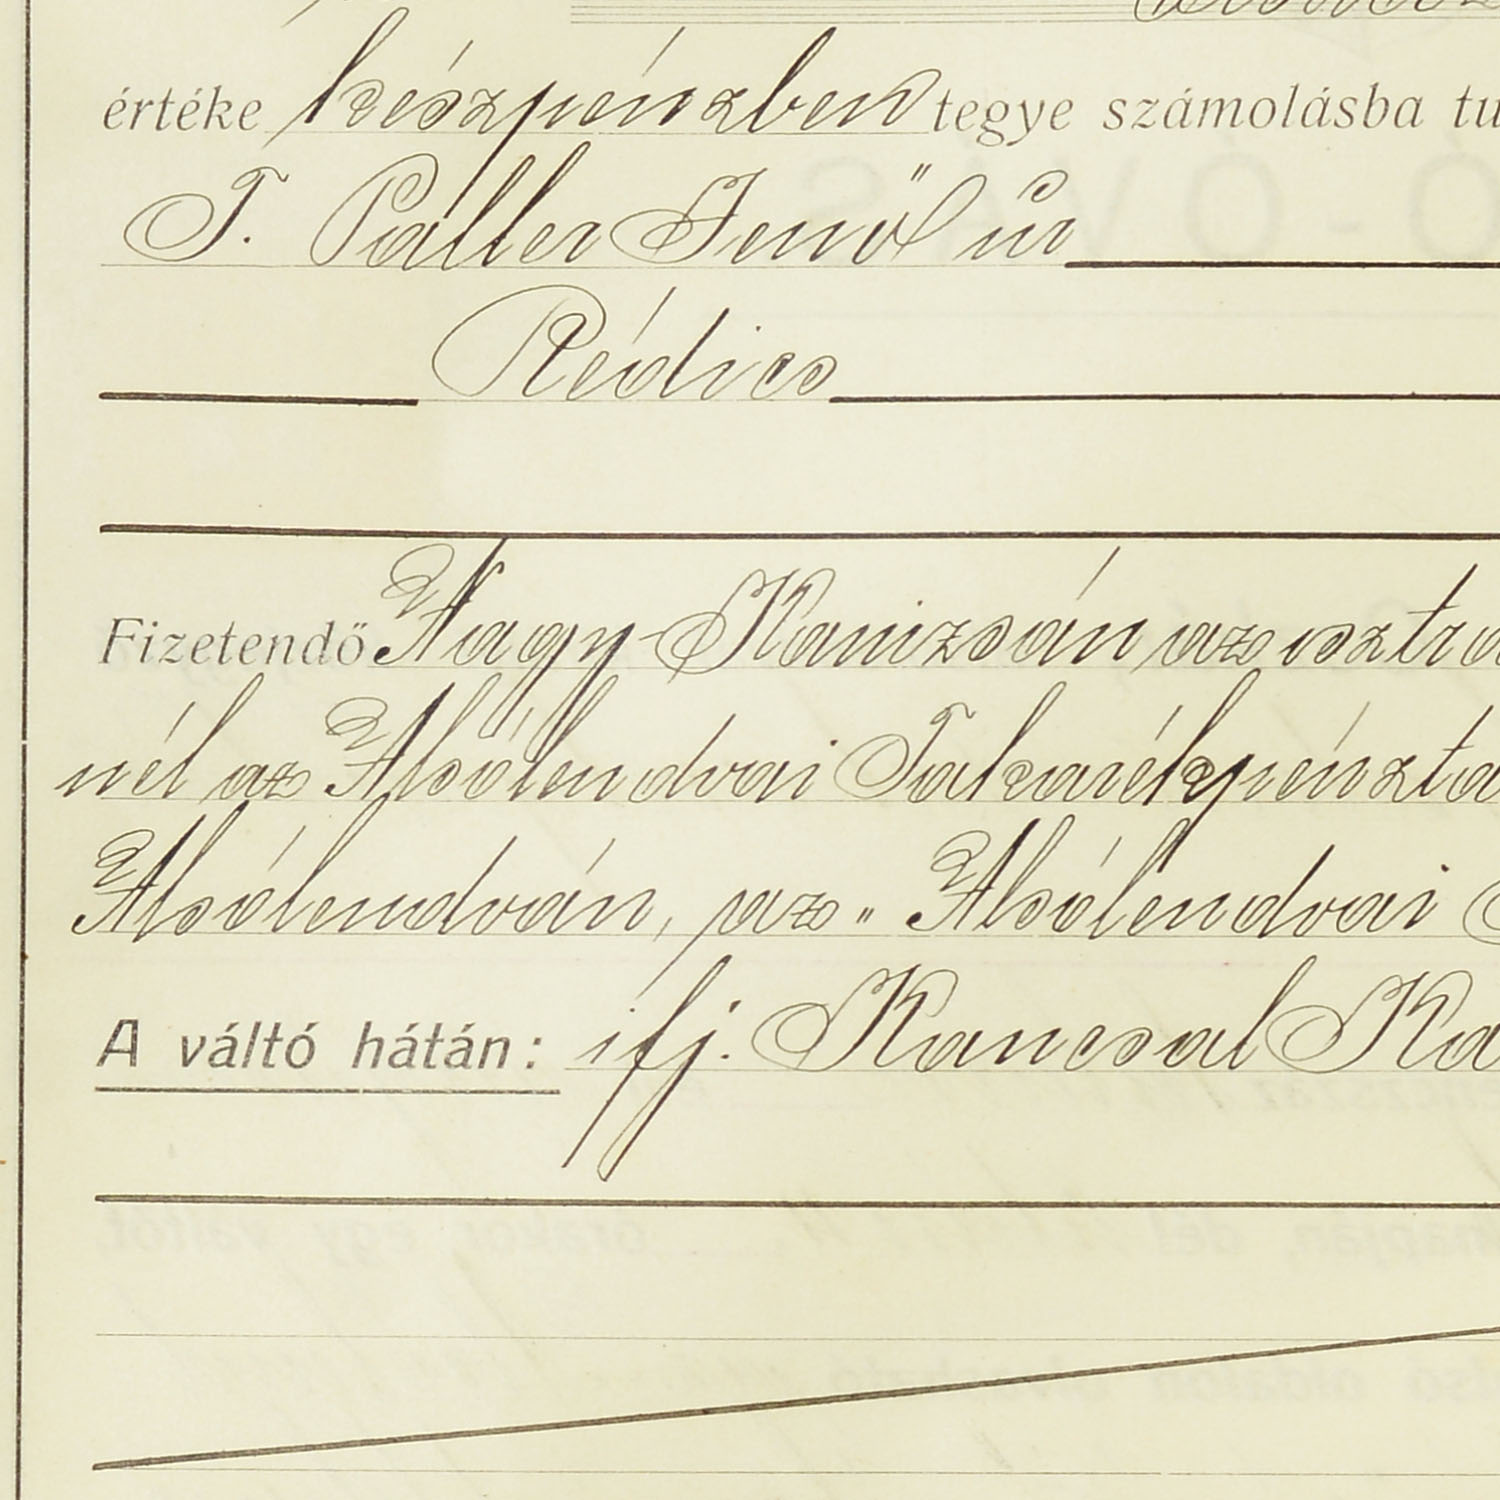 értéke készpénzben tegye számolásba
T. Páller Jenő úr
Rédics
Fizetendő Nagy-Kanizsán az
nél az Alsólendvai
Alsólendván, az „Alsólendvai
A váltó hátán: ifj. Kancsal